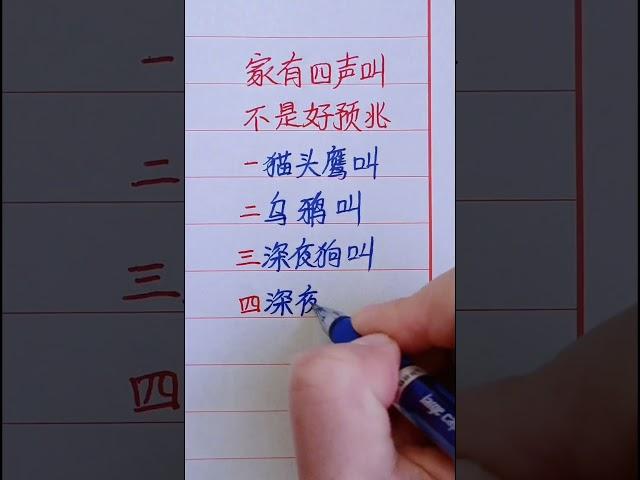 家有四声叫
不是好预兆
一猫头鹰叫
二乌鸦叫
三深夜狗叫
四深夜
一
二
三
四